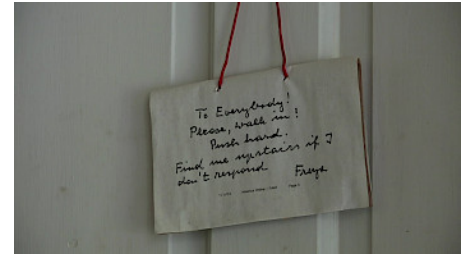 To Everybody!
Please, walk in!
Push hard.
Find me upstairs if I
don't respond Freya